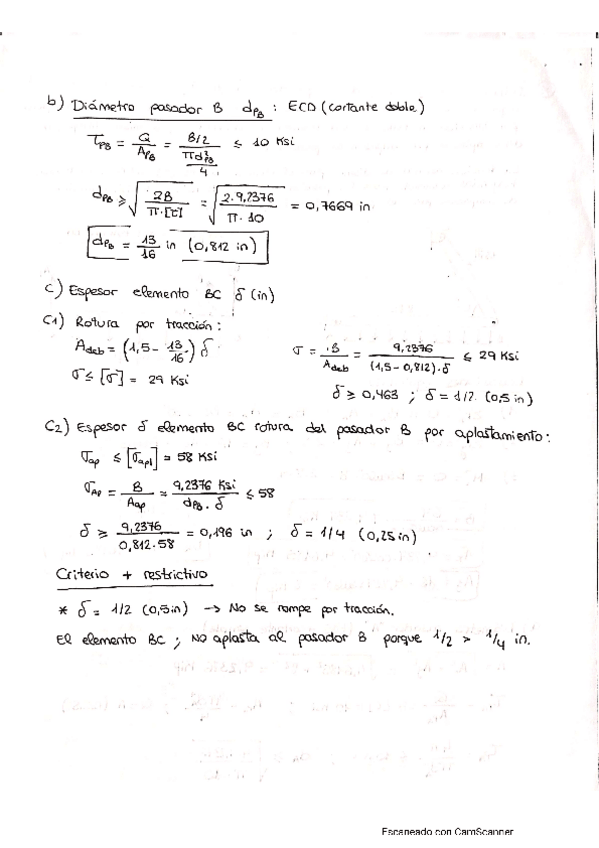 b) Diámetro pasador B dPB : ECD (cortante doble)
τPB = Q/APB = (B/2)/(πd²PB/4) ≤ 10 Ksi
dPB ≥ √(2B/(π·[τ])) = √(2·9,2376/(π·10)) = 0,7669 in
dPB = 13/16 in (0,812 in)
C) Espesor elemento BC δ (in)
C1) Rotura por tracción:
Adeb = (1,5 - 13/16) δ
σ = B/Adeb = 9,2376/((1,5-0,812)·δ) ≤ 29 Ksi
σ ≤ [σ] = 29 Ksi
δ ≥ 0,463 ; δ = 1/2 (0,5 in)
C2) Espesor δ elemento BC rotura del pasador B por aplastamiento:
σap ≤ [σapl] = 58 Ksi
σAp = B/Aap = 9,2376 Ksi/(dPB · δ) ≤ 58
δ ≥ 9,2376/(0,812·58) = 0,196 in ; δ = 1/4 (0,25in)
Criterio + restrictivo
* δ = 1/2 (0,5in) → No se rompe por tracción.
El elemento BC ; NO aplasta al pasador B porque 1/2 > 1/4 in.
Escaneado con CamScanner